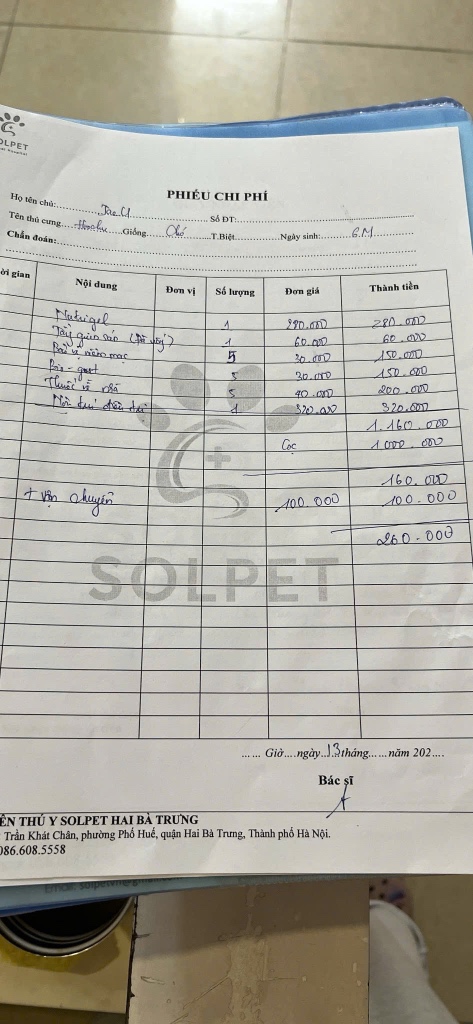 SOLPET
PHIẾU CHI PHÍ
Họ tên chủ: Số ĐT:
Tên thú cưng Giống Chó T.Biệt Ngày sinh: 6M
Chẩn đoán:
ời gian Nội dung Đơn vị Số lượng Đơn giá Thành tiền
Nutrigel 1 280.000 280.000
Tẩy giun sán 1 60.000 60.000
niêm mạc 5 30.000 150.000
5 30.000 150.000
Thuốc 5 40.000 200.000
1 320.000 320.000
1.160.000
Cọc 1.000.000
160.000
+ Vận chuyển 100.000 100.000
260.000
SOLPET
...... Giờ....ngày..13tháng......năm 202....
Bác sĩ
ỆN THÚ Y SOLPET HAI BÀ TRƯNG
Trần Khát Chân, phường Phố Huế, quận Hai Bà Trưng, Thành phố Hà Nội.
086.608.5558